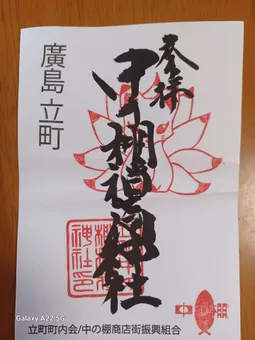 奉拝
廣島 立町
中ノ棚稲荷神社
中 棚
立町町内会/中の棚商店街振興組合
Galaxy A22 5G